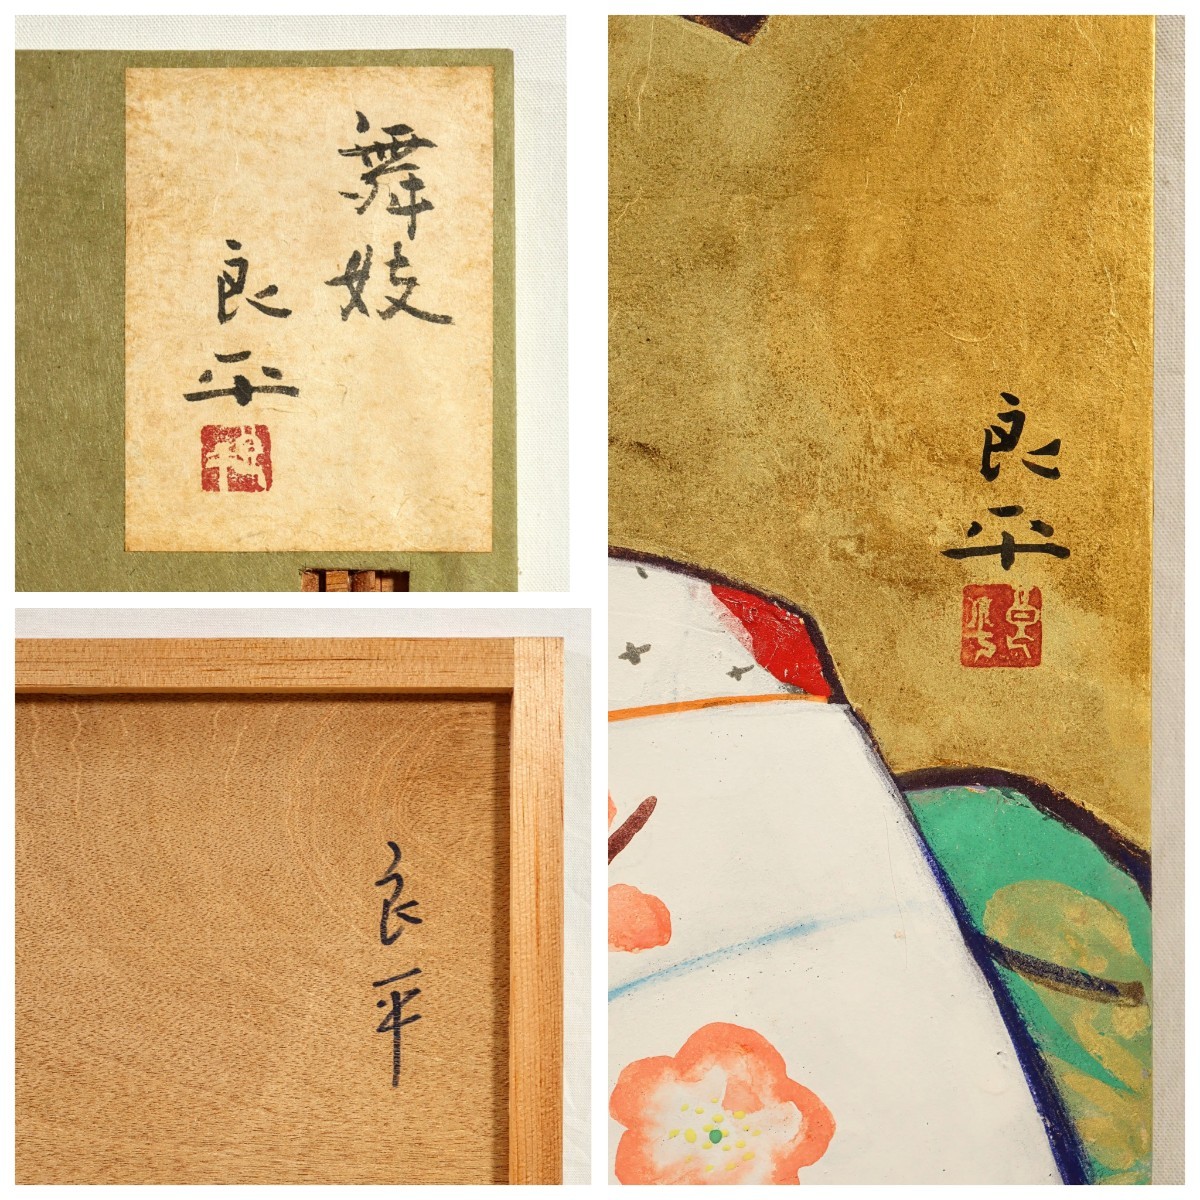 舞妓
良平
良平
良平